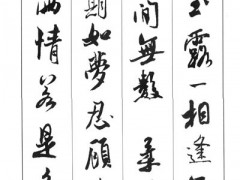 玉露一相逢
間無數 柔
期如夢忍顧
兩情若是